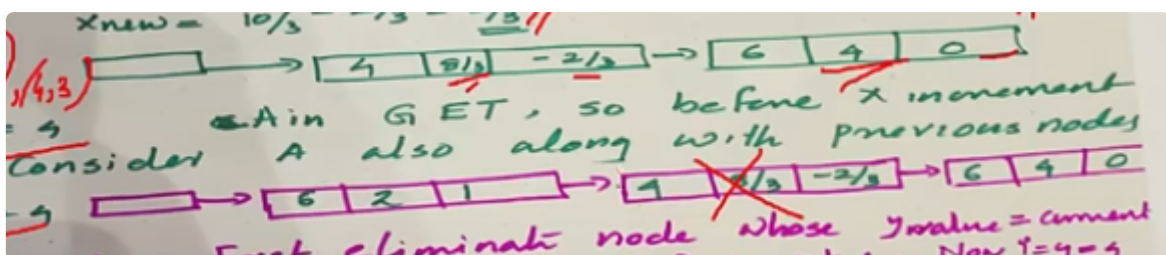 xnew = 10/3 - 2/3 = 
4 8/3 - 2/3 → 6 4 0
, (4,3)
A in GET, so before x increment
= 4
Consider A also along with previous nodes
6 2 1 → 4 /3 -2/3 → 6 4 0
4
First eliminate node whose Y value = current
Now Y = 4 = 4